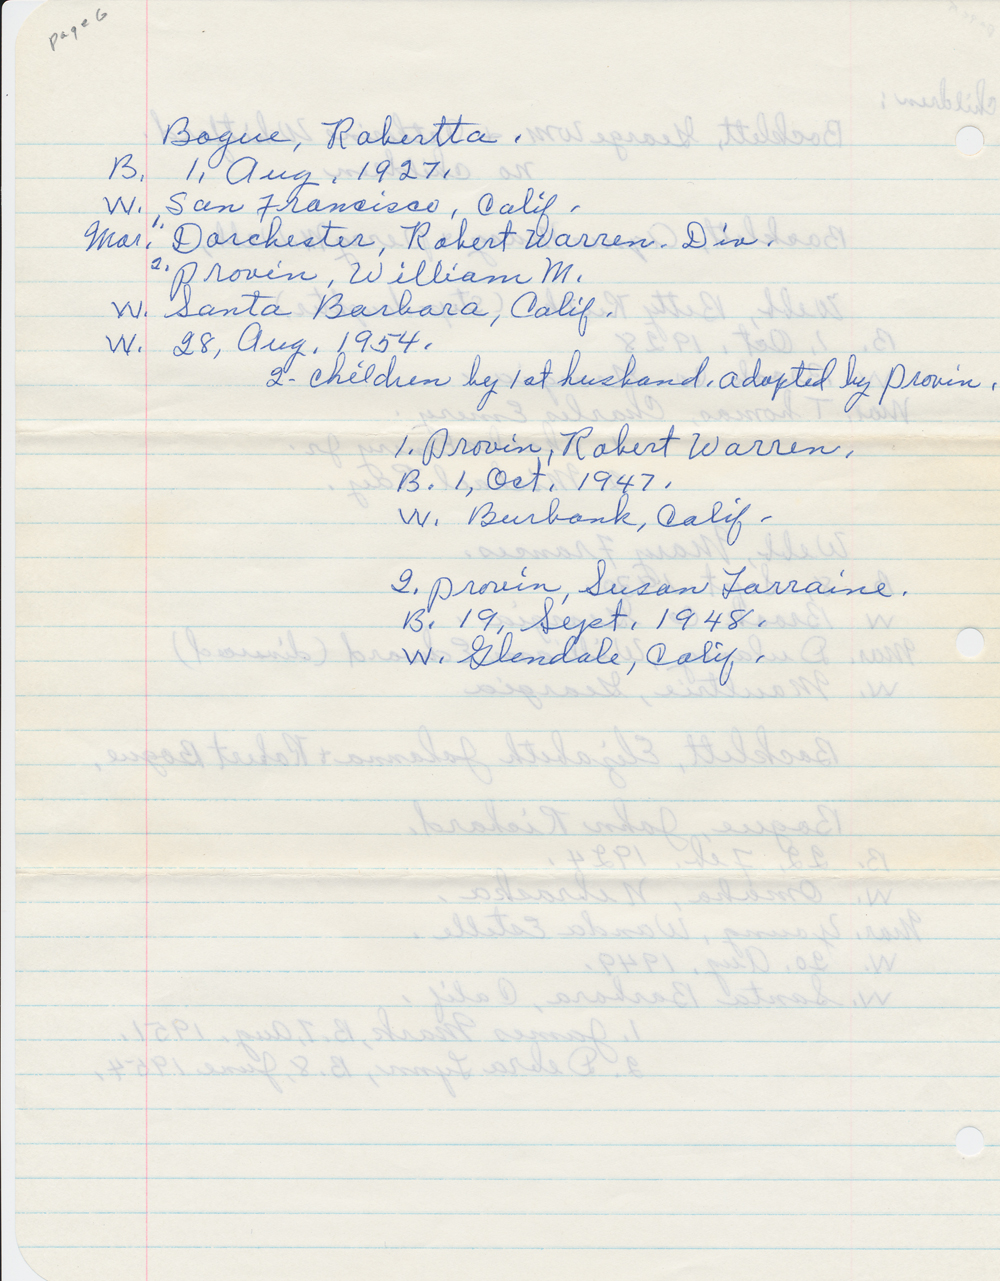 page 6
Bogue, Robertta.
B. 1, Aug. 1927.
W. San Francisco, Calif.
Mar. 1. Dorchester, Robert Warren. Div.
2. Provin, William M.
W. Santa Barbara, Calif.
W. 28, Aug. 1954.
2- children by 1st husband. adopted by Provin.
1. Provin, Robert Warren.
B. 1, Oct. 1947.
W. Burbank, Calif.
2. Provin, Susan Lorraine.
B. 19, Sept. 1948.
W. Glendale, Calif.